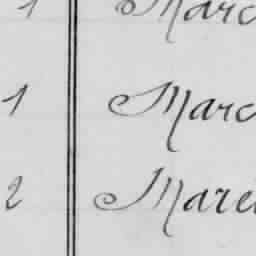 1 Marc
1 Marc
2 Mare